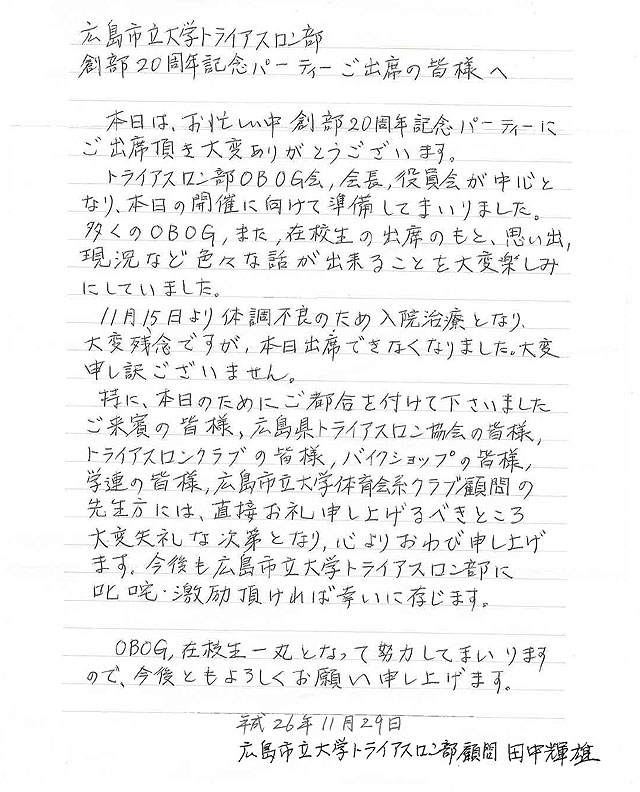 広島市立大学トライアスロン部
創部20周年記念パーティーご出席の皆様へ
本日は、お忙しい中 創部20周年記念パーティーに
ご出席頂き大変ありがとうございます。
トライアスロン部OBOG会,会長,役員会が中心と
なり、本日の開催に向けて準備してまいりました。
多くのOBOG,また,在校生の出席のもと、思い出,
現況など色々な話が出来ることを大変楽しみ
にしていました。
11月15日より体調不良のため入院治療となり、
大変残念ですが、本日出席できなくなりました。大変
申し訳ございません。
特に、本日のためにご都合を付けて下さいました
ご来賓の皆様,広島県トライアスロン協会の皆様,
トライアスロンクラブの皆様,バイクショップの皆様,
学連の皆様,広島市立大学体育会系クラブ顧問の
先生方には、直接お礼申し上げるべきところ
大変失礼な次第となり,心よりおわび申し上げ
ます。今後も広島市立大学トライアスロン部に
叱咤・激励頂ければ幸いに存じます。
OBOG,在校生一丸となって努力してまいります
ので、今後ともよろしくお願い申し上げます。
平成26年11月29日
広島市立大学トライアスロン部顧問 田中輝雄